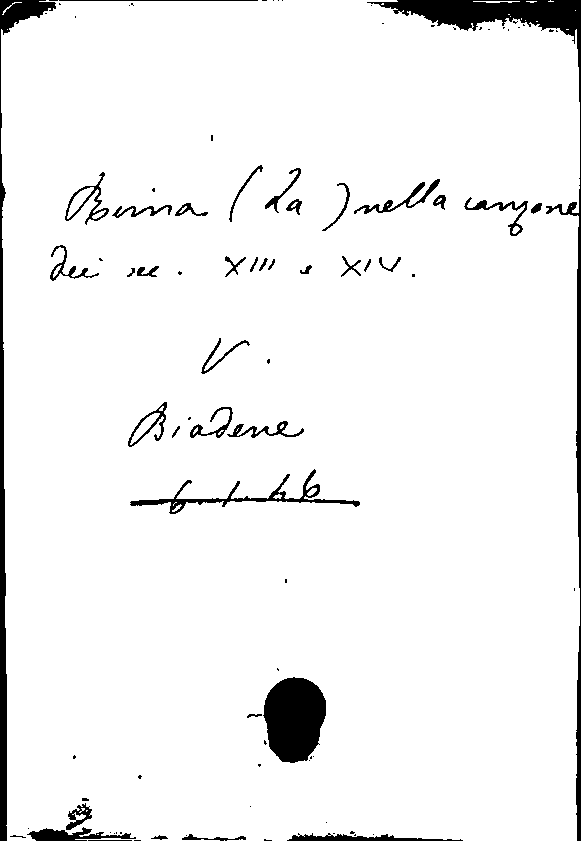 Rima (La) nella canzone
dei sec. XIII e XIV.
V.
Biadene
6.1.46